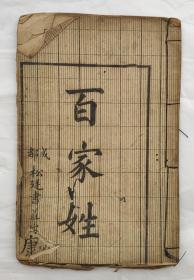 百家姓
成都
松廷書莊